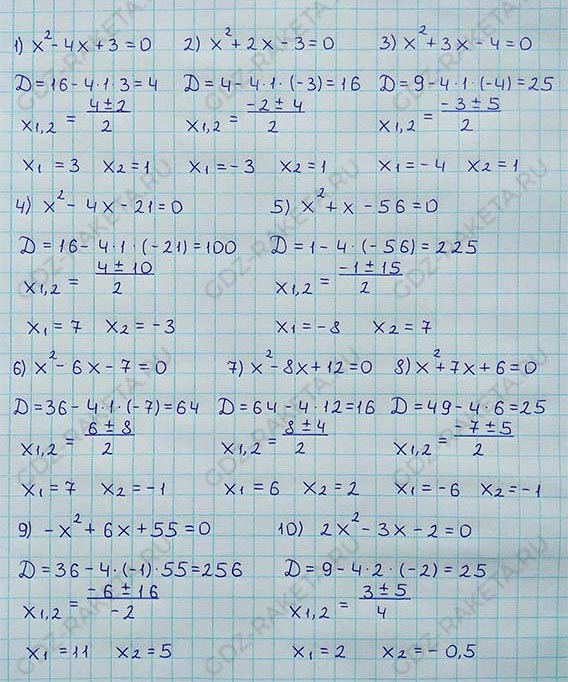 1) x² - 4x + 3 = 0   2) x² + 2x - 3 = 0   3) x² + 3x - 4 = 0
D = 16 - 4·1·3 = 4   D = 4 - 4·1·(-3) = 16   D = 9 - 4·1·(-4) = 25
x₁,₂ = (4 ± 2)/2   x₁,₂ = (-2 ± 4)/2   x₁,₂ = (-3 ± 5)/2
x₁ = 3   x₂ = 1   x₁ = -3   x₂ = 1   x₁ = -4   x₂ = 1
4) x² - 4x - 21 = 0   5) x² + x - 56 = 0
D = 16 - 4·1·(-21) = 100   D = 1 - 4·(-56) = 225
x₁,₂ = (4 ± 10)/2   x₁,₂ = (-1 ± 15)/2
x₁ = 7   x₂ = -3   x₁ = -8   x₂ = 7
6) x² - 6x - 7 = 0   7) x² - 8x + 12 = 0   8) x² + 7x + 6 = 0
D = 36 - 4·1·(-7) = 64   D = 64 - 4·12 = 16   D = 49 - 4·6 = 25
x₁,₂ = (6 ± 8)/2   x₁,₂ = (8 ± 4)/2   x₁,₂ = (-7 ± 5)/2
x₁ = 7   x₂ = -1   x₁ = 6   x₂ = 2   x₁ = -6   x₂ = -1
9) -x² + 6x + 55 = 0   10) 2x² - 3x - 2 = 0
D = 36 - 4·(-1)·55 = 256   D = 9 - 4·2·(-2) = 25
x₁,₂ = (-6 ± 16)/-2   x₁,₂ = (3 ± 5)/4
x₁ = 11   x₂ = 5   x₁ = 2   x₂ = -0,5
GDZ-RAKETA.RU